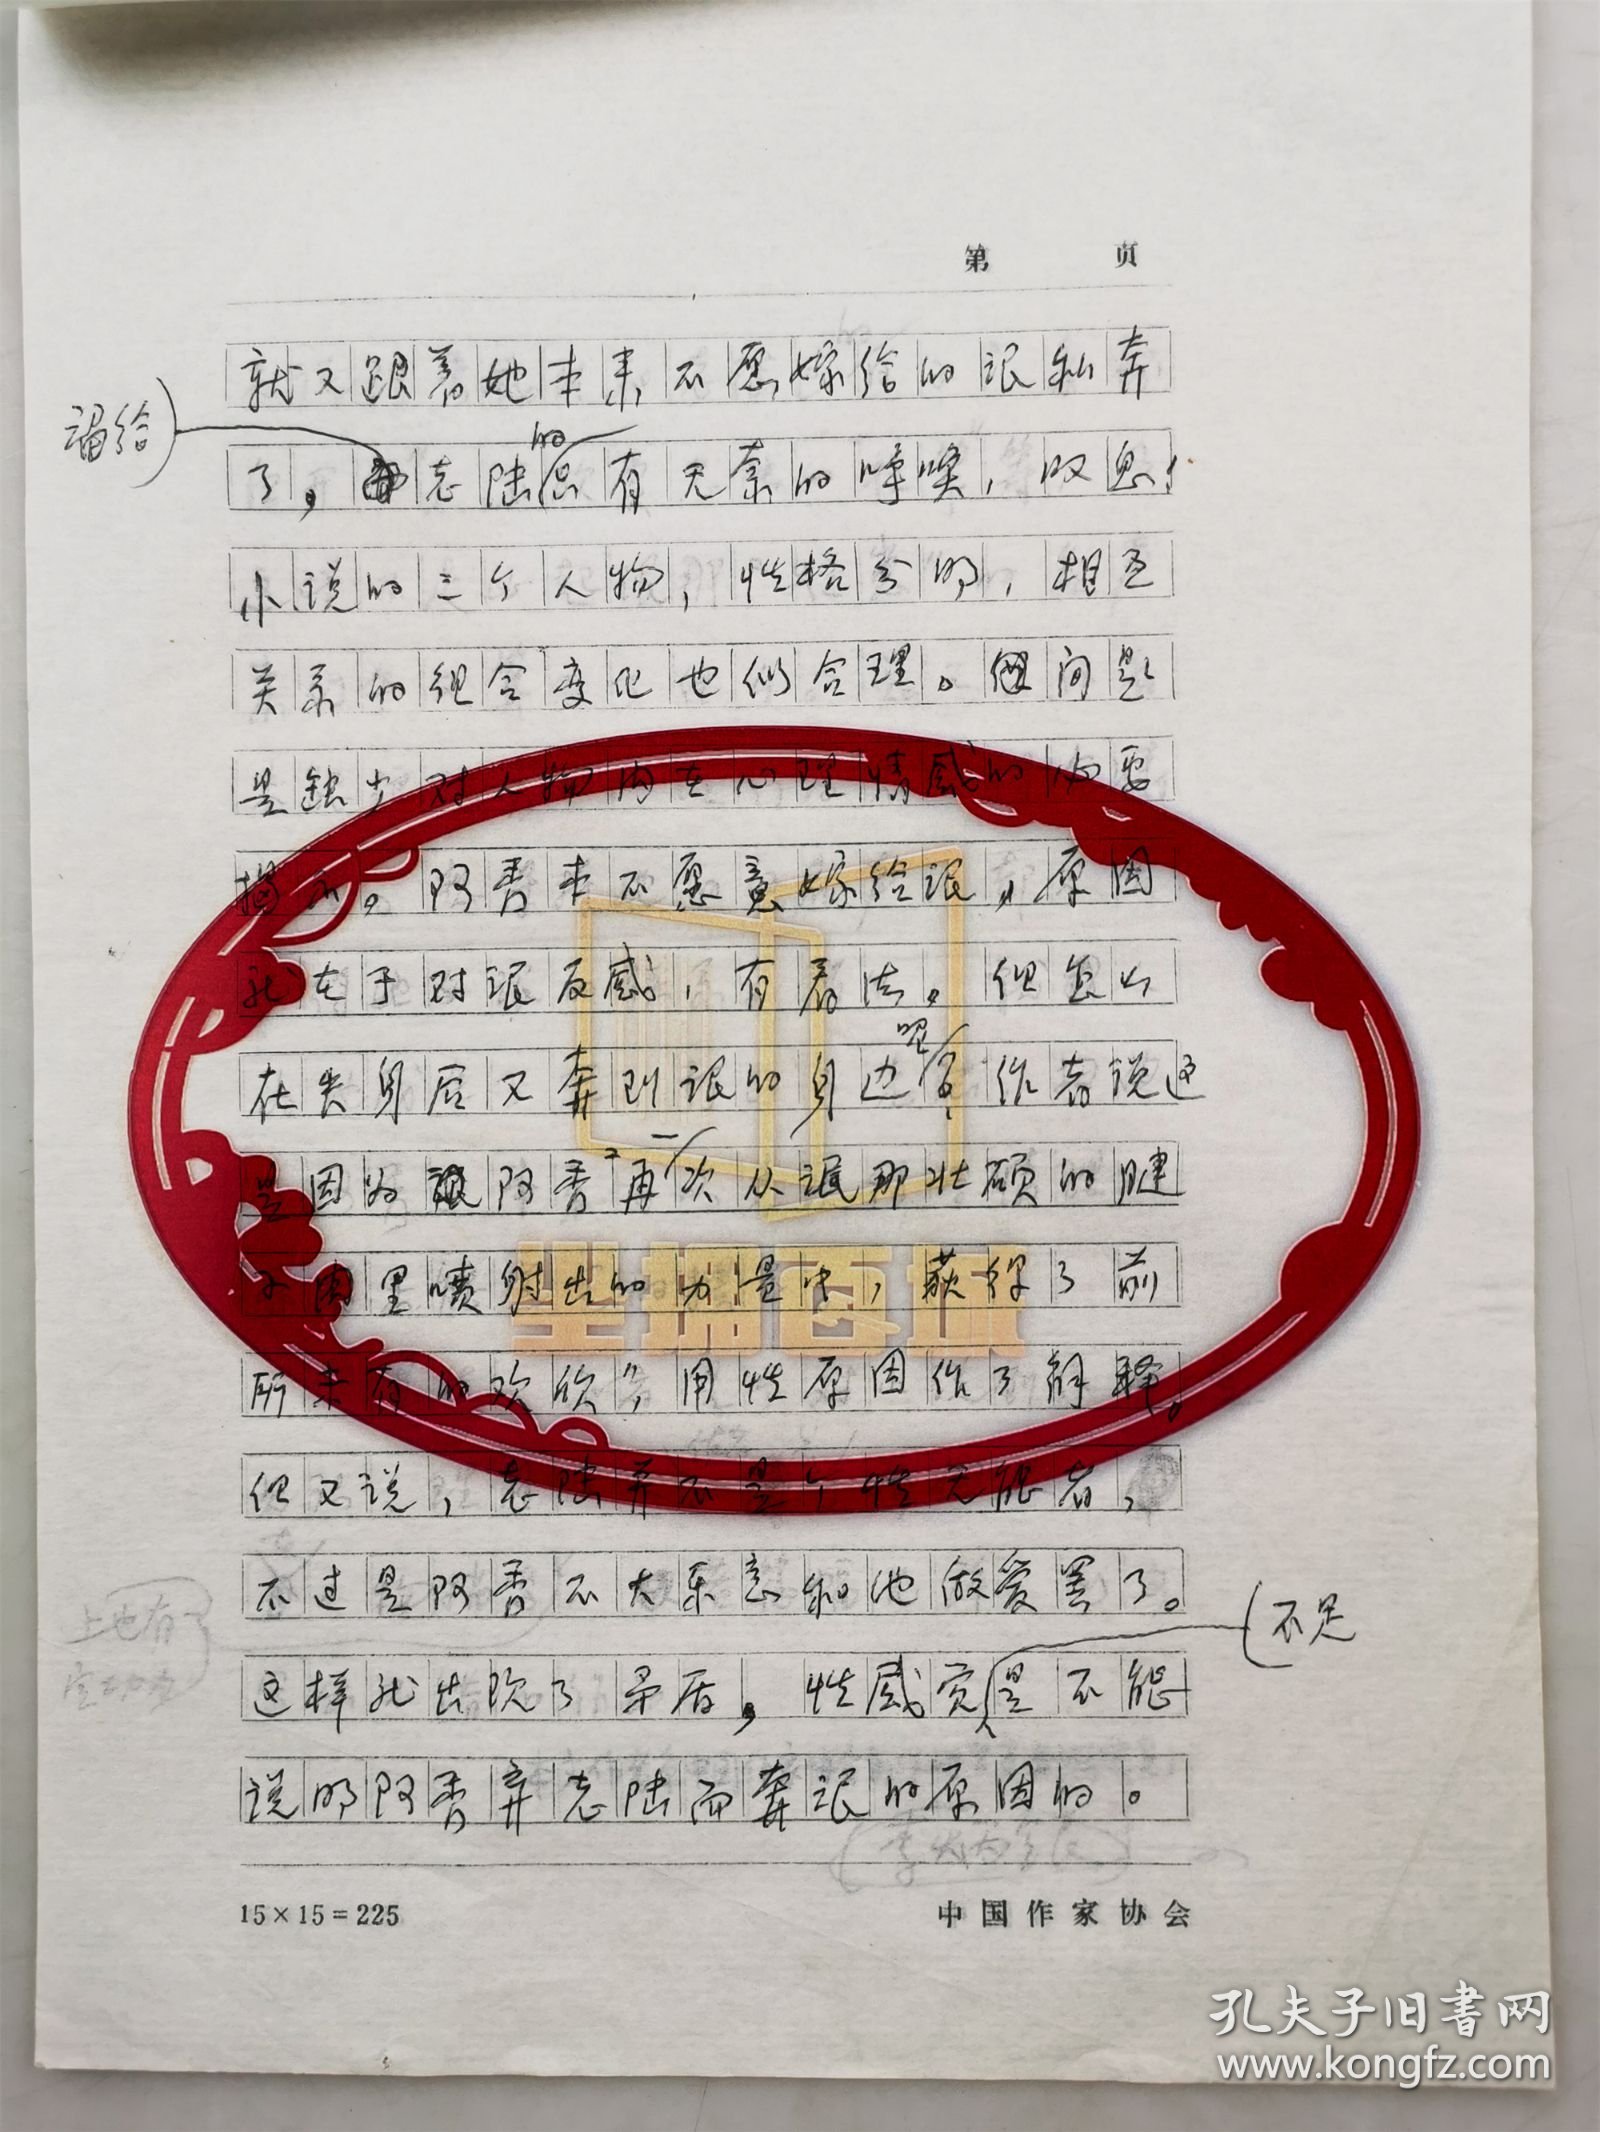 第 页
就又跟着她本来不愿嫁给的泯私奔
留给
了，志陆的只有无奈的呼唤，叹息！
小说的三个人物，性格分明，相互
关系的组合变化也似合理。但问题
是缺少对人物内在心理情感的必要
揭示。阿香本不愿意嫁给泯，原因
就在于对泯反感，有看法。但怎么
在失身后又奔到泯的身边呢？作者说这
是因为阿香“再一次从泯那壮硕的腱
子肉里喷射出的力量中，获得了前
所未有的欢欣”，用性原因作了解释。
但又说，志陆并不是个性无能者，
不过是阿香不大乐意和他做爱罢了。
上也有
不足
这样就出现了矛盾，性感觉是不能
说明阿香弃志陆而奔泯的原因的。
15×15=225
中国作家协会
孔夫子旧书网
www.kongfz.com